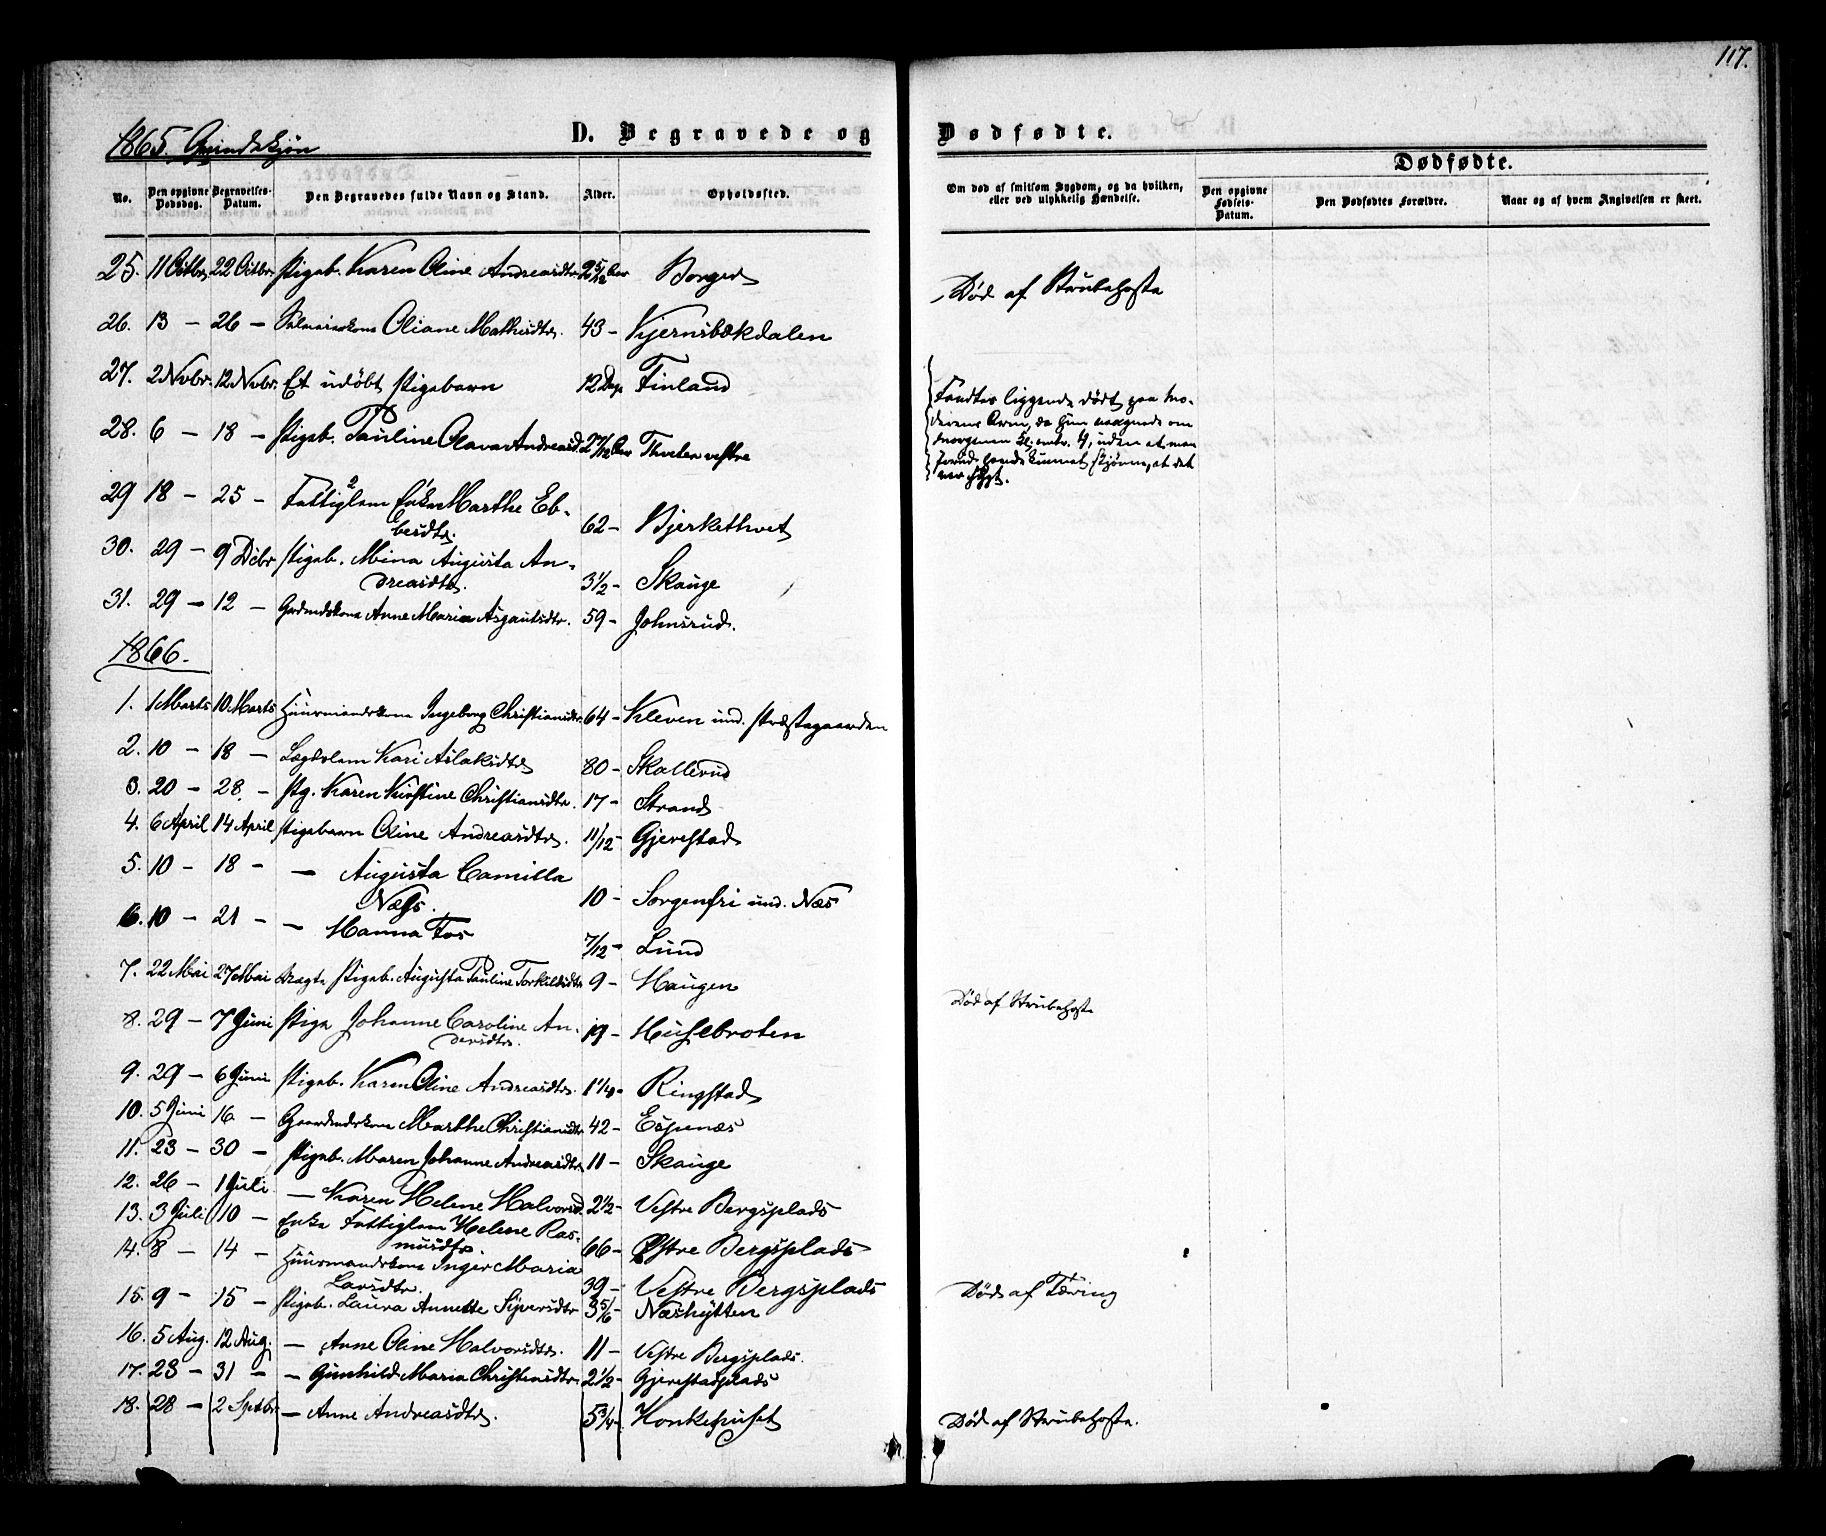 117.
1865. Qvindekjøn
D. Begravede og Dødfødte.
Dødfødte.
No.
Den opgivne Dødsdag.
Begravelses-Datum.
Den Begravedes fulde Navn og Stand.
Alder.
Opholdssted.
Om død af smitsom Sygdom, og da hvilken, eller ved ulykkelig Hændelse.
Den opgivne Fødsels-Datum.
Den Dødfødtes Forældre.
Naar og af hvem Angivelsen er skeet.
25. 11 Octbr. 22 Octbr. Pigeb. Karen Oline Andreasdtr. 2 5/12 Aar Borged Død af Strubehoste
26. 13 — 26 — Oliane Mathisdtr. 43 — Kjernsbækdalen
27. 2 Novbr. 12 Novbr. Et udøbt Pigebarn 12 Dage Finland
Fandtes liggende dødt paa Mo-
derens Arm, da hun vaagnede om
Morgenen Kl. omtr. 4, uden at man
forud havde kunnet skjønne, at det
var sygt.
28. 6 — 18 — Pigeb. Pauline Olava Andreasd. Aar Thveter vestre
29 18 — 25 — Fattiglem Enke Marthe Eb-
besdtr. 62 — Bjerkethvet
30. 29 — 9 Decbr Pigeb. Mina Augusta An-
dreasdtr. 3 1/2 — Skauge
31. 29 — 12 — Gaardmdskone Anne Maria Asgautsdtr. 59 — Johnsrud.
1866.
1. 1 Marts 10 Marts Huusmandskone Ingeborg Christiansdtr. 64 — Kleven und. Præstegaarden
2. 10 — 18 — Lægdslem Kari Aslaksdtr 80 — Skallerud
3. 20 — 28. — Pg. Karen Kirstine Christiansdtr. 17 — Strand
4. 6 April 14 April Pigebarn Oline Andreasdtr. 11/12 — Gjerestad
5. 10 — 18 — — Augusta Camilla
Næss. 10 — Sorgenfri und. Næs
6. 10 — 21 — — Hanna Fos 7/12 — Lund
7. 22 Mai 27 Mai Ægte Pigeb. Augusta Pauline Torkildsdtr 9 — Haugen Død af Strubehoste
8. 29 — 7 Juni Pige Johanne Caroline An-
dersdtr. 19 — Huslebroten
9. 29 — 6 Juni Pigeb. Karen Oline Andreasdtr. 1 1/4 — Ringstad
10. 5 Juni 16 — Gaardmdskone Marthe Christiansdtr 42 — Espenæs
11. 23 — 30 — Pigeb. Maren Johanne Andreasdtr 11 — Skauge
12. 26 — 1 Juli — Karen Helene Halvorsd. 2 1/2 — Vestre Bergsplads
13. 3 Juli 10 — Enke Fattiglem Helene Ras-
musdtr. 66 — Østre Bergsplads
14. 8 — 14 — Huusmandskone Inger Maria
Larsdtr. 39 — Vestre Bergsplads Død af Tæring
15. 9 — 15 — Pigeb. Laura Annette Syversdtr 3 5/6 — Næshytten
16. 5 Aug. 12 Aug. — Anne Oline Halvorsdtr. 11 — Vestre Bergsplads.
17. 23 — 31 — — Gunhild Maria Christensdtr. 2 1/2 — Gjerestadplads
18. 28 — 2 Septbr. — Anne Andreasdtr. 5 3/4 — Honkehuset Død af Strubehoste.